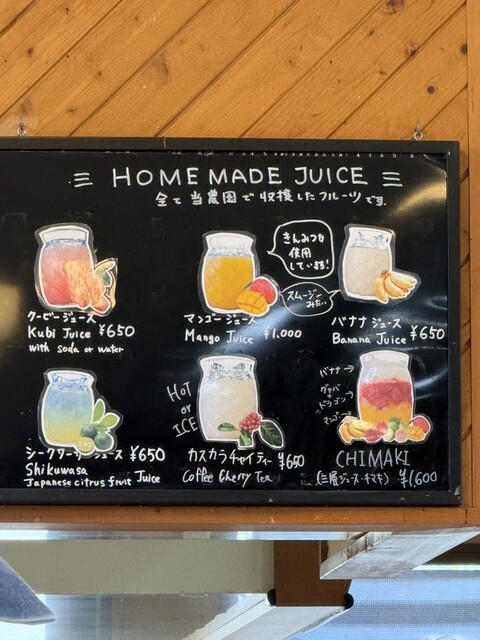 HOME MADE JUICE
全て当農園で収穫したフルーツです。
きんみつを
使用
しています!
スムージー
みたい
クービージュース
Kubi Juice ¥650
with soda or water
マンゴージュース
Mango Juice ¥1.000
バナナジュース
Banana Juice ¥650
シークワーサージュース ¥650
Shikuwasa
Japanese citrus fruit Juice
HOT
or
ICE
カスカラチャイティー ¥650
Coffee Cherry Tea
バナナ→
グァバ
+
ドラゴン→
マンゴー→
CHIMAKI
(三層ジュース・チマキ) ¥1600